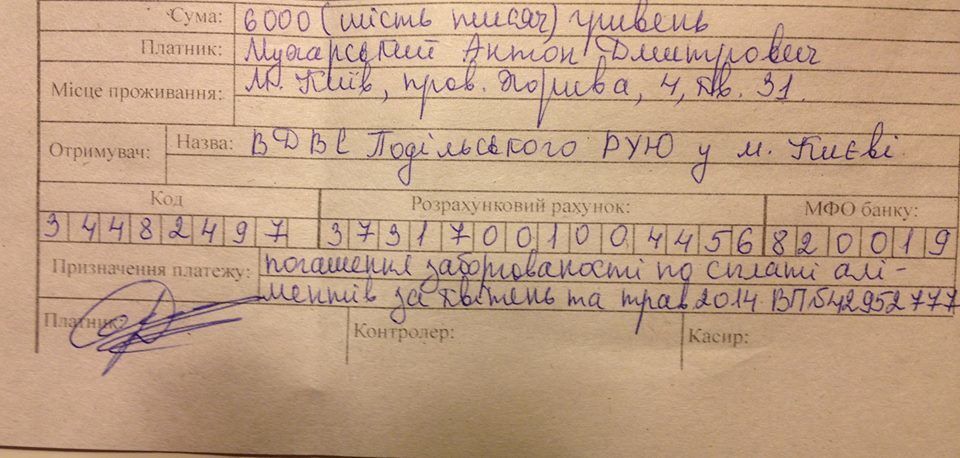 Сума: 6000 (шість тисяч) гривень
Платник: Мухарський Антон Дмитрович
Місце проживання: м. Київ, пров. Хорива, 4, кв. 31.
Отримувач: Назва: ВДВС Подільського РУЮ у м. Києві
Код Розрахунковий рахунок: МФО банку:
34482497 37317001004456 820019
Призначення платежу: погашення заборгованості по сплаті алі-
ментів за квітень та трав.2014. ВП№42952777
Платник: Контролер: Касир: